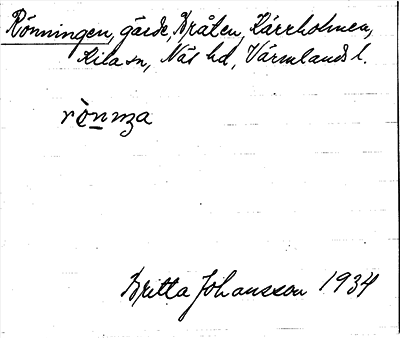 Rönningen, gärde, Bråten, Kärrholmen,
Kila sn, Näs hd, Värmlands l.
Britta Johansson 1934